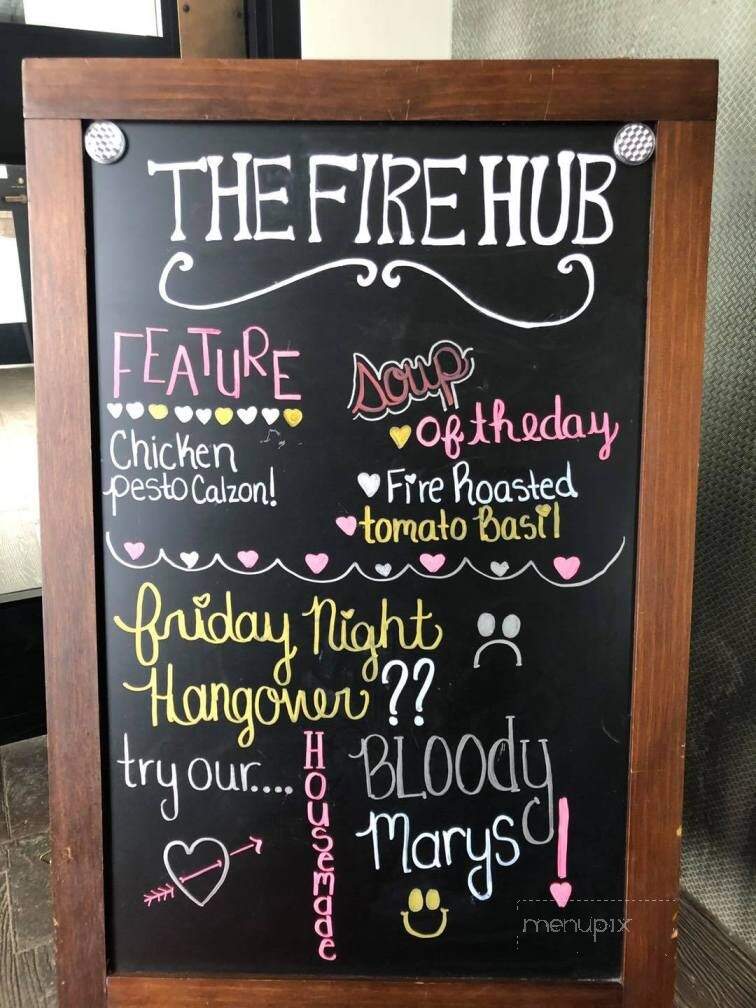 THE FIRE HUB
FEATURE
Chicken
pesto Calzon!
soup
of the day
Fire Roasted
tomato Basil
friday Night
Hangover ??
try our....
Housemade
BLOODy
Marys!
menupix